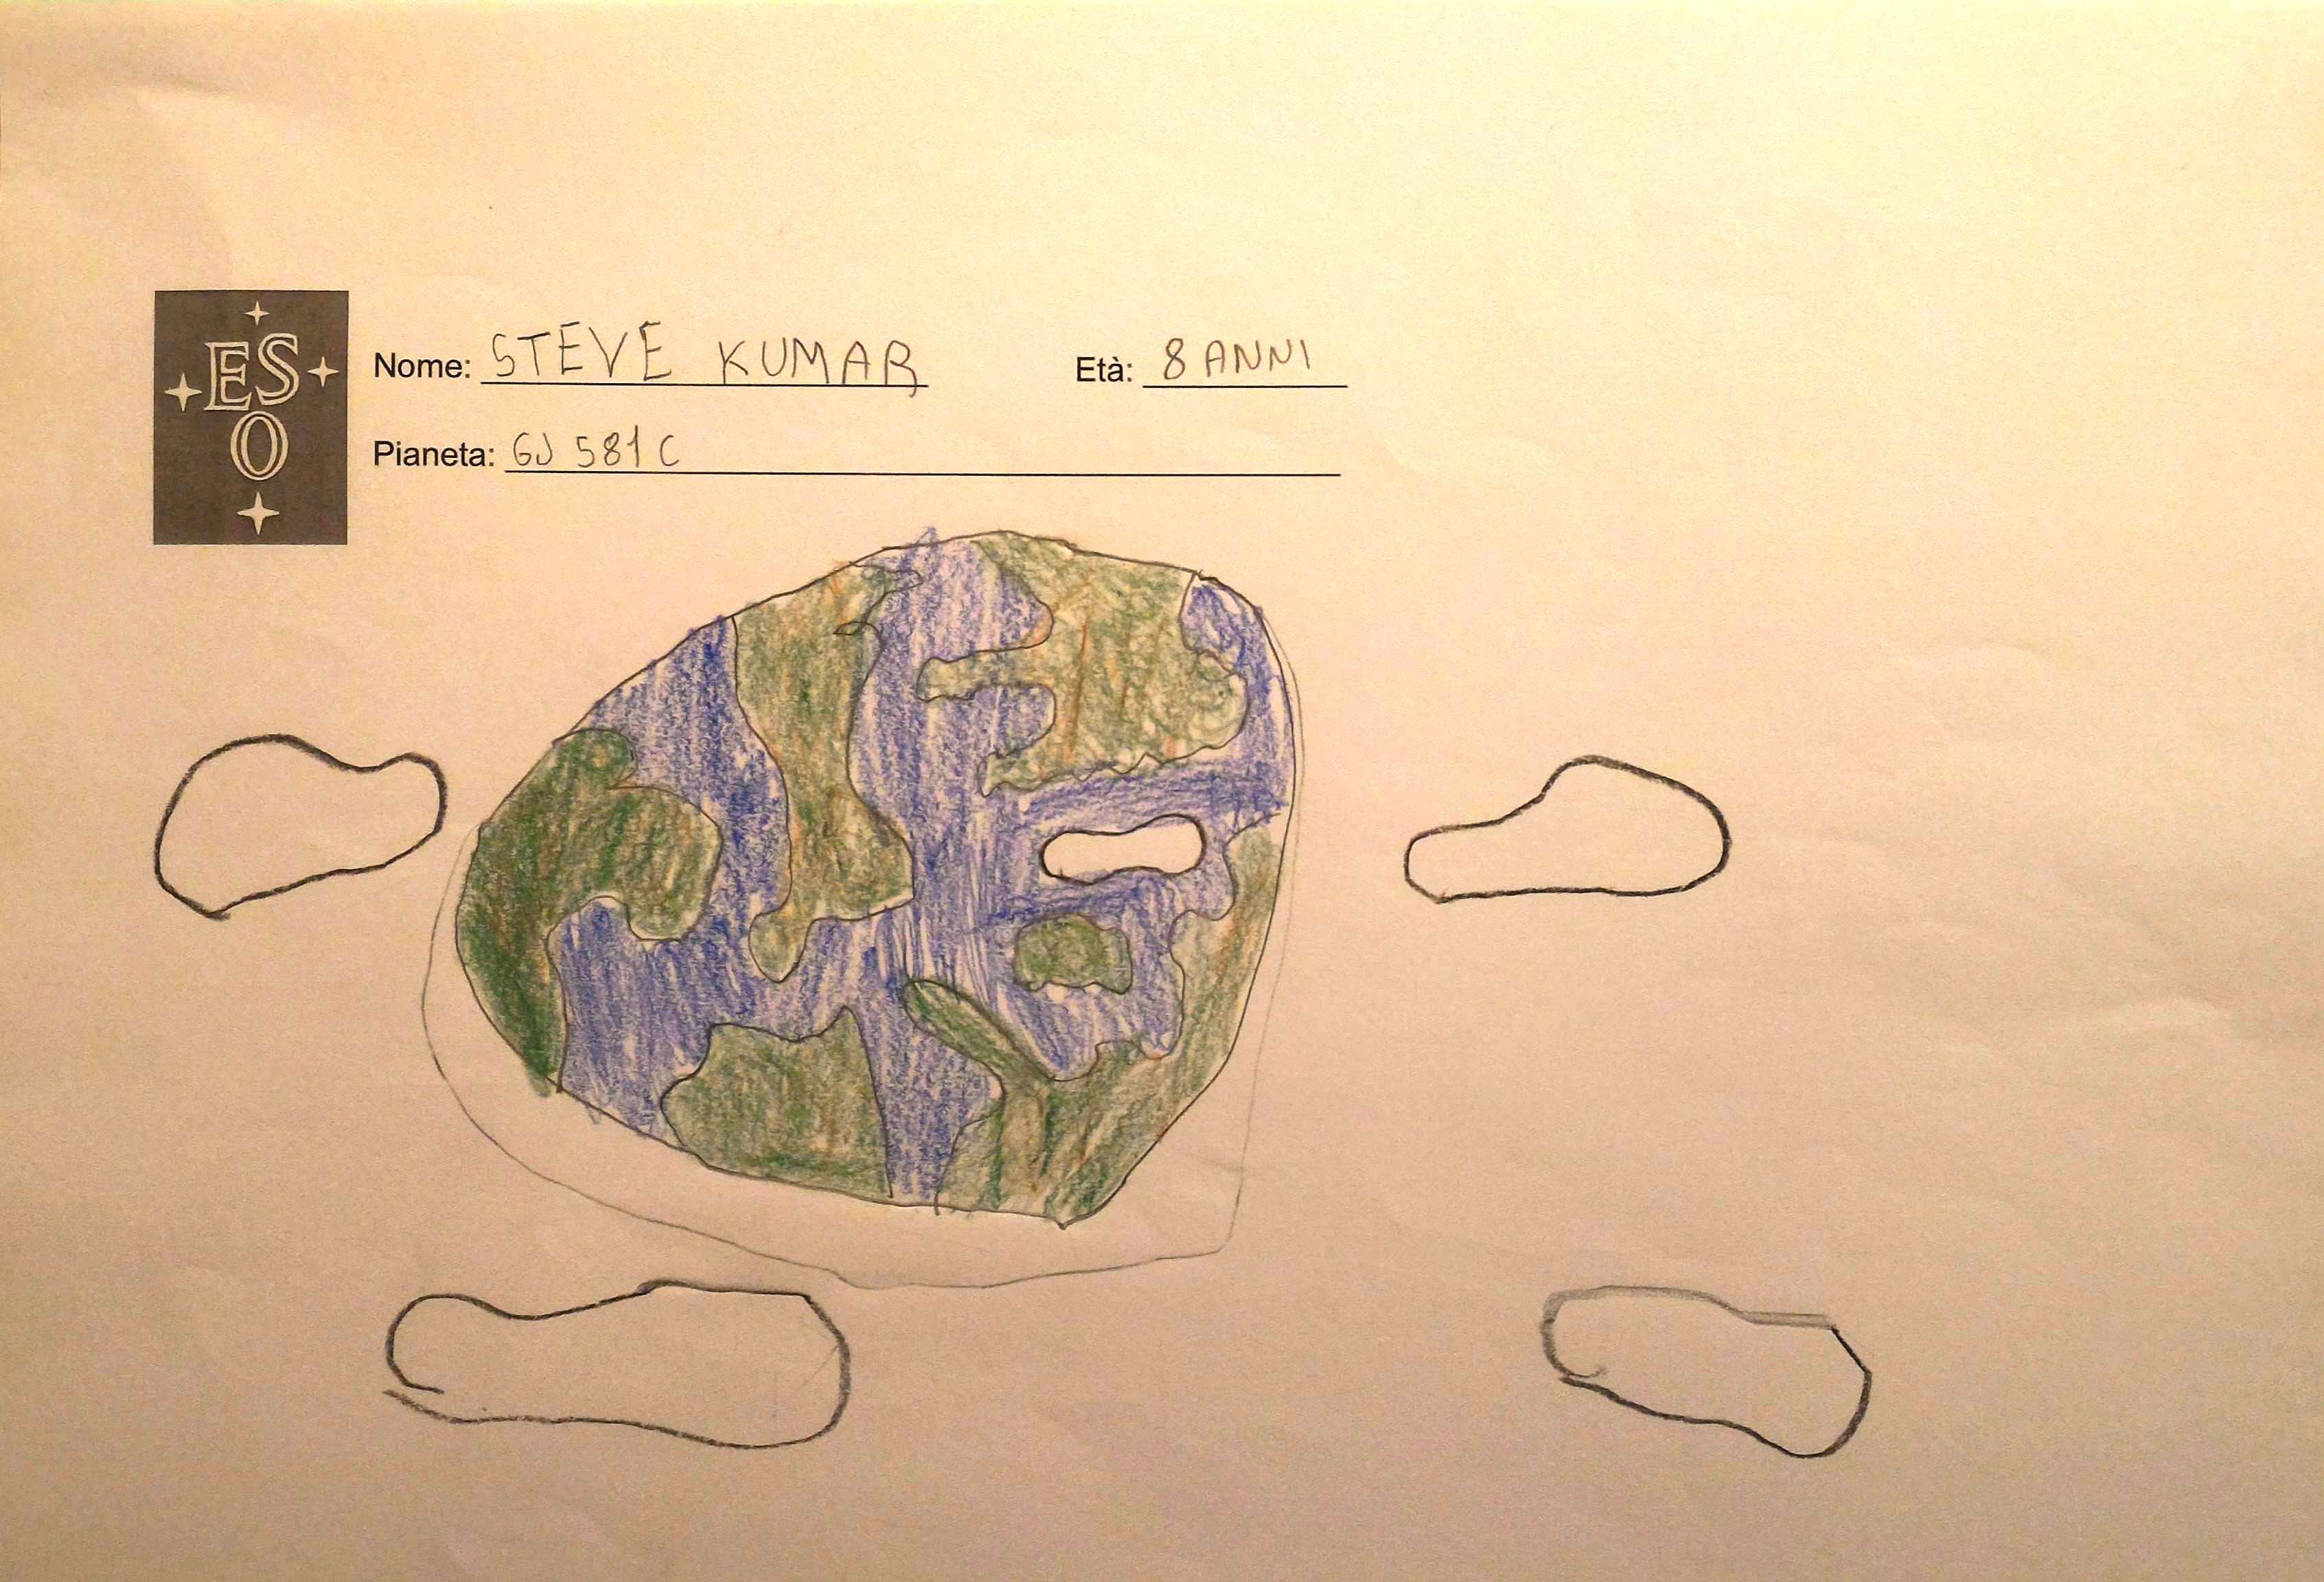 ES
O
Nome: STEVE KUMAR Età: 8 ANNI
Pianeta: GJ 581 C